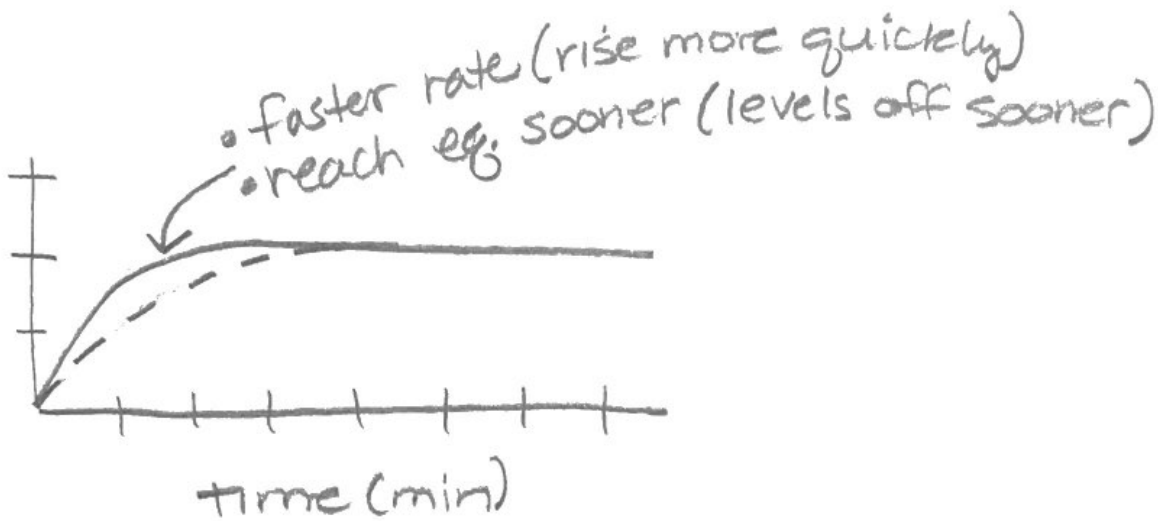 • faster rate (rise more quickly)
• reach eq. sooner (levels off sooner)
time (min)